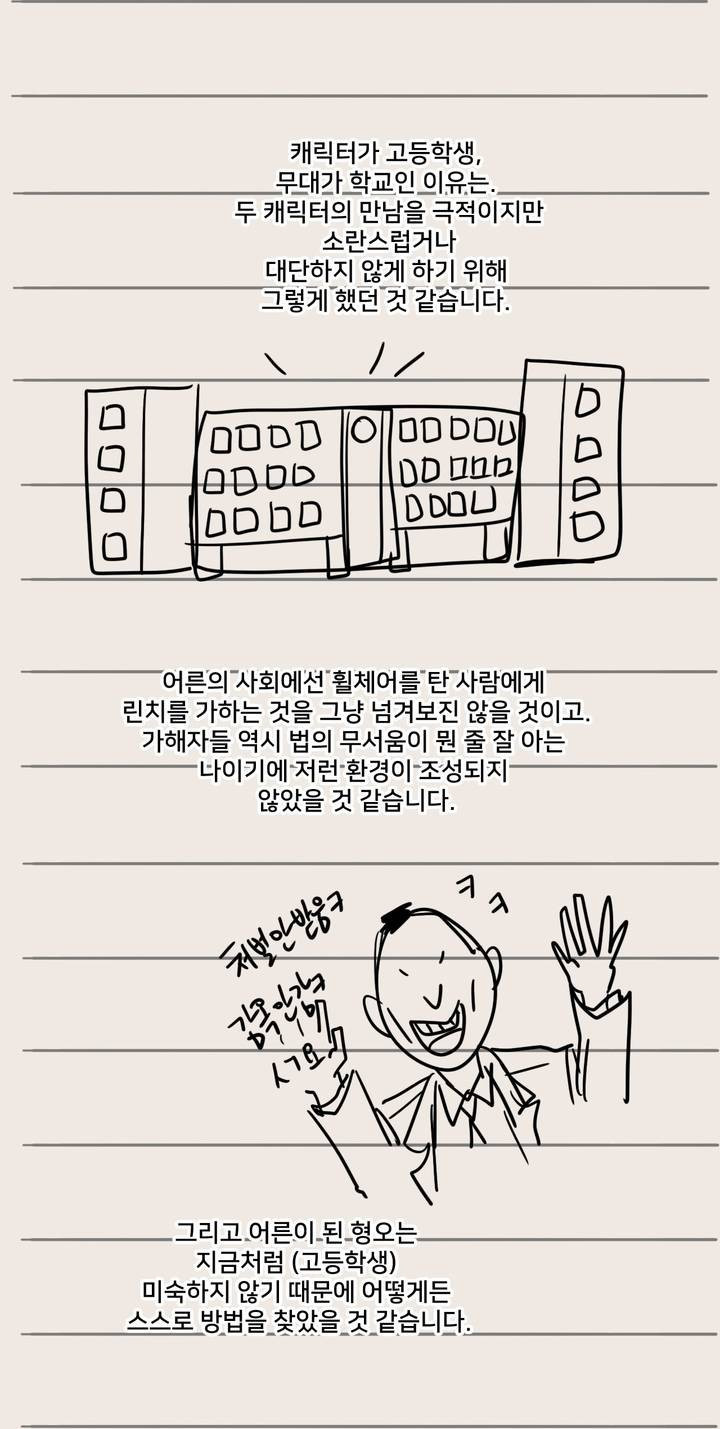 캐릭터가 고등학생,
무대가 학교인 이유는.
두 캐릭터의 만남을 극적이지만
소란스럽거나
대단하지 않게 하기 위해
그렇게 했던 것 같습니다.
어른의 사회에선 휠체어를 탄 사람에게
린치를 가하는 것을 그냥 넘겨보진 않을 것이고.
가해자들 역시 법의 무서움이 뭔 줄 잘 아는
나이기에 저런 환경이 조성되지
않았을 것 같습니다.
ㅋ
ㅋ
처벌안받음ㅋ
감옥안감
그리고 어른이 된 형오는
지금처럼 (고등학생)
미숙하지 않기 때문에 어떻게든
스스로 방법을 찾았을 것 같습니다.